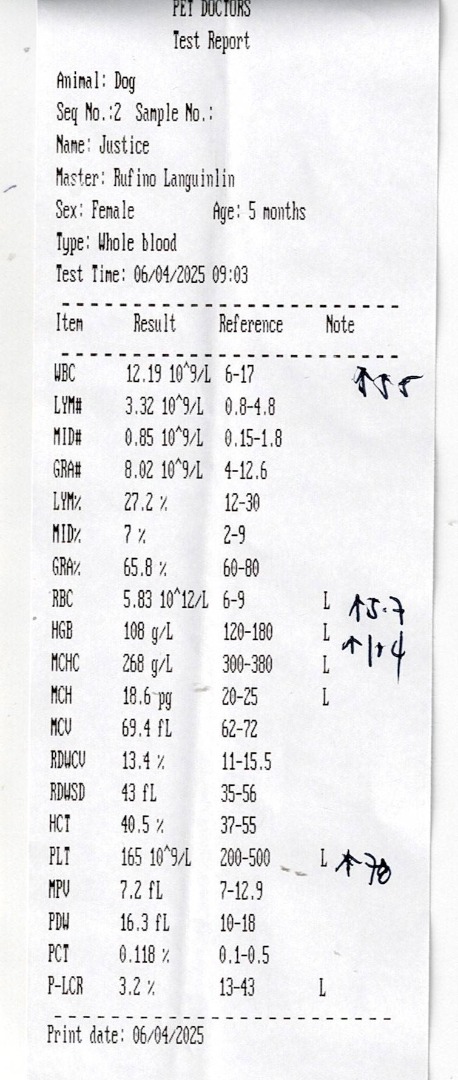 PET DOCTORS
Test Report
Animal: Dog
Seq No.:2 Sample No.:
Name: Justice
Master: Rufino Languinlin
Sex: Female Age: 5 months
Type: Whole blood
Test Time: 06/04/2025 09:03
Item Result Reference Note
WBC 12.19 10^9/L 6-17 ↑55
LYM# 3.32 10^9/L 0.8-4.8
MID# 0.85 10^9/L 0.15-1.8
GRA# 8.02 10^9/L 4-12.6
LYM% 27.2 % 12-30
MID% 7 % 2-9
GRA% 65.8 % 60-80
RBC 5.83 10^12/L 6-9 L ↑5.7
HGB 108 g/L 120-180 L
MCHC 268 g/L 300-380 L
MCH 18.6 pg 20-25 L
MCV 69.4 fL 62-72
RDWCV 13.4 % 11-15.5
RDWSD 43 fL 35-56
HCT 40.5 % 37-55
PLT 165 10^9/L 200-500 L ↑70
MPV 7.2 fL 7-12.9
PDW 16.3 fL 10-18
PCT 0.118 % 0.1-0.5
P-LCR 3.2 % 13-43 L
Print date: 06/04/2025